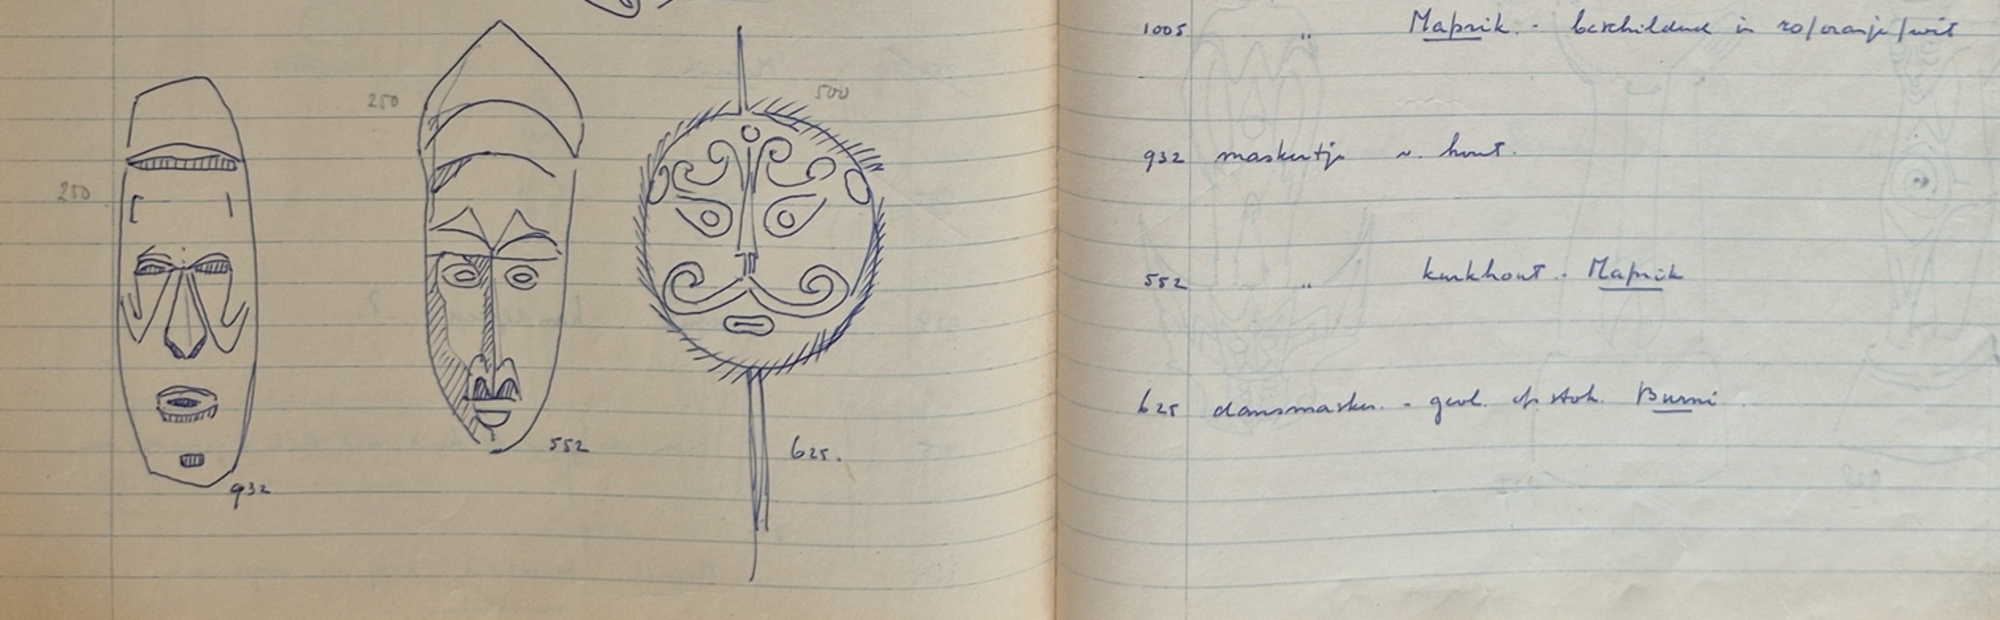 250
250
500
932
552
625.
1005 " Maprik. - beschilderd in ro/oranje/wit
932 maskertje v. hout.
552 " kurkhout. Maprik
625 dansmasker. - gevl. op stok. Burni